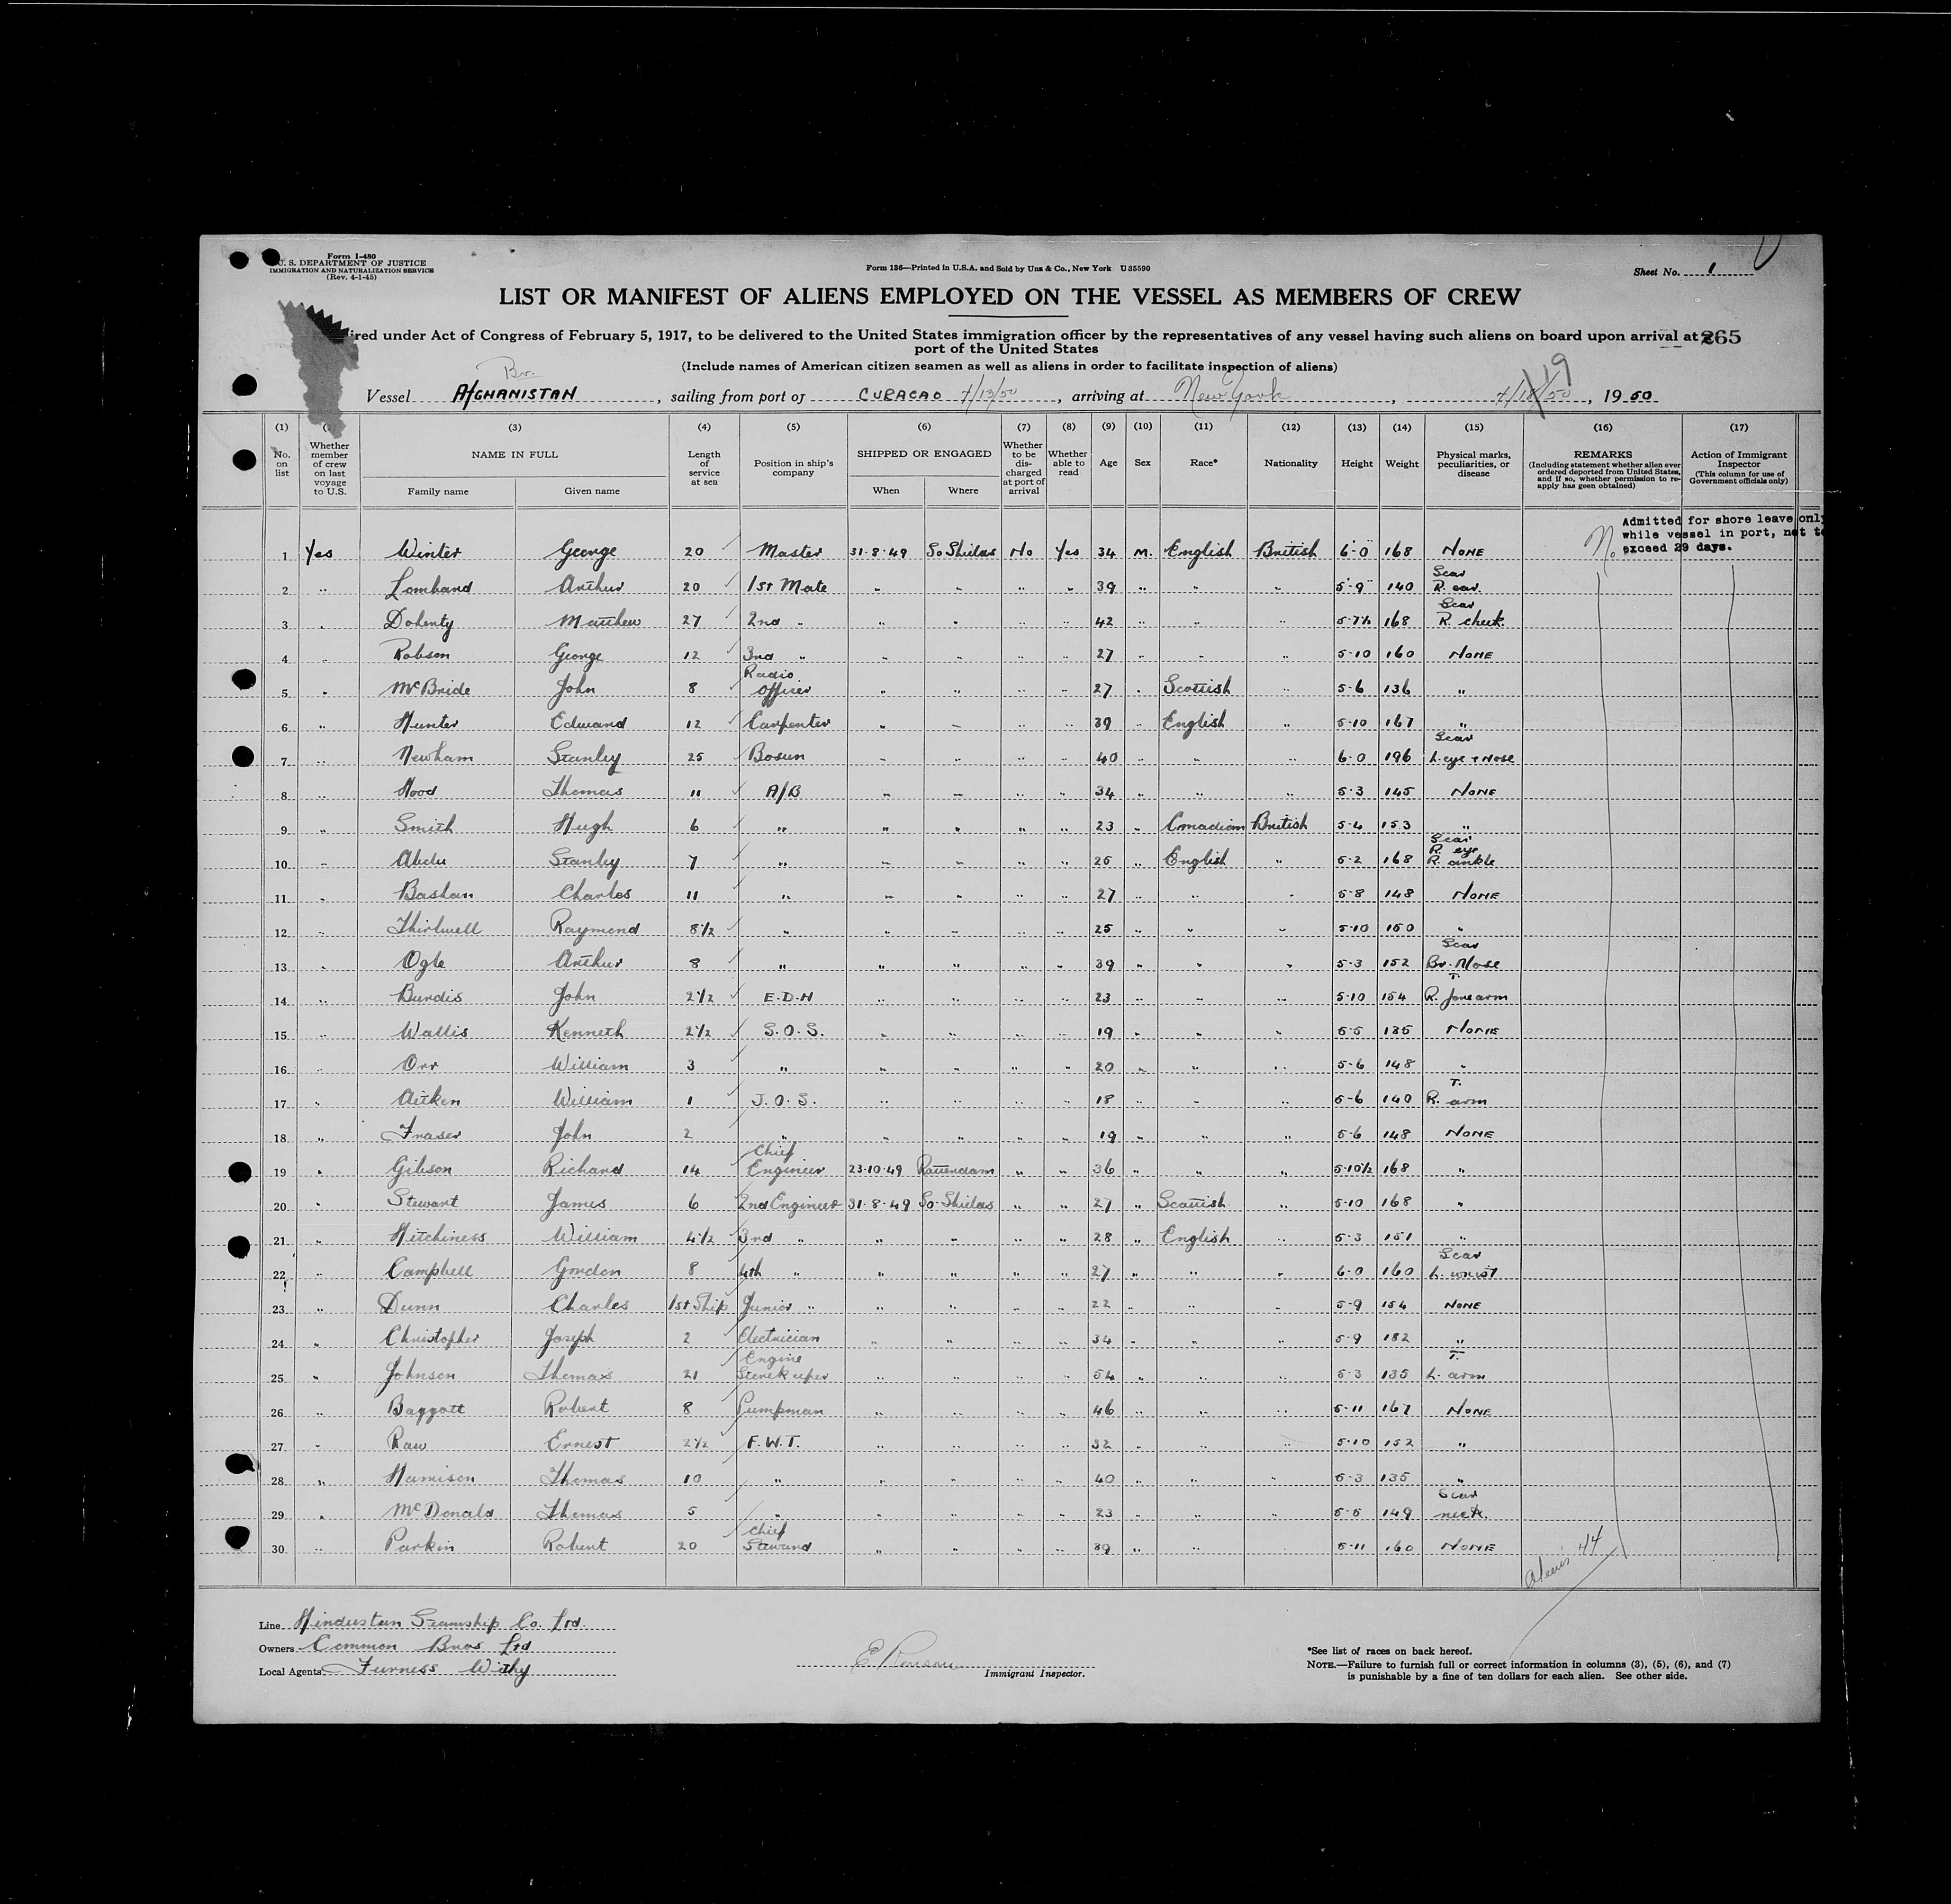 Form I-480
U. S. DEPARTMENT OF JUSTICE
IMMIGRATION AND NATURALIZATION SERVICE
(Rev. 4-1-45)
Form 136—Printed in U.S.A. and Sold by Unz & Co., New York U 35590
Sheet No. 1
LIST OR MANIFEST OF ALIENS EMPLOYED ON THE VESSEL AS MEMBERS OF CREW
ired under Act of Congress of February 5, 1917, to be delivered to the United States immigration officer by the representatives of any vessel having such aliens on board upon arrival at 265
port of the United States
(Include names of American citizen seamen as well as aliens in order to facilitate inspection of aliens)
Br.
Vessel AFGHANISTAN, sailing from port of CURACAO 4/13/50, arriving at New York, 4/18/50 19, 1950
(1) (3) (4) (5) (6) (7) (8) (9) (10) (11) (12) (13) (14) (15) (16) (17)
No. on list
Whether member of crew on last voyage to U.S.
NAME IN FULL
Family name
Given name
Length of service at sea
Position in ship's company
SHIPPED OR ENGAGED
When
Where
Whether to be discharged at port of arrival
Whether able to read
Age
Sex
Race*
Nationality
Height
Weight
Physical marks, peculiarities, or disease
REMARKS
(Including statement whether alien ever ordered deported from United States, and if so, whether permission to re-apply has been obtained)
Action of Immigrant Inspector
(This column for use of Government officials only)
Admitted for shore leave only
while vessel in port, not to
exceed 29 days.
1 Yes Winter George 20 Master 31-8-49 So Shields No Yes 34 M. English British 6-0 168 NONE
2 " Lombard Arthur 20 1st Mate " " " " 39 " " " 5-9 140 Scar R. ear.
3 " Doherty Matthew 27 2nd " " " " " 42 " " " 5-7½ 168 Scar R. cheek
4 " Robson George 12 3rd " " " " " 27 " " " 5-10 160 NONE
5 " McBride John 8 Radio Officer " " " " 27 " Scottish " 5-6 136 "
6 " Hunter Edward 12 Carpenter " " " " 39 " English " 5-10 167 "
7 " Newham Stanley 25 Bosun " " " " 40 " " " 6-0 196 Scar L. eye + Nose
8 " Hood Thomas 11 A/B " " " " 34 " " " 5-3 145 NONE
9 " Smith Hugh 6 " " " " " 23 " Canadian British 5-4 153 "
10 " Stanley 7 " " " " " " English " 5-2 168 Scar R. eye R. ankle
11 " Basham Charles 11 " " " " " 27 " " " 5-8 148 NONE
12 " Thirlwell Raymond 8½ " " " " " 25 " " " 5-10 150 "
13 " Ogle Arthur 8 " " " " " 39 " " " 5-3 152 Scar Br. Nose
14 " Burdis John 2½ E.D.H " " " " 23 " " " 5-10 154 T. R. forearm
15 " Wallis Kenneth 2½ S.O.S. " " " " 19 " " " 5-5 135 NONE
16 " Orr William 3 " " " " " 20 " " " 5-6 148 "
17 " Aitken William 1 J.O.S. " " " " 18 " " " 5-6 140 T. R. arm
18 " Fraser John 2 " " " " " 19 " " " 5-6 148 NONE
19 " Gibson Richard 14 Chief Engineer 23-10-49 Rotterdam " " 36 " " " 5-10½ 168 "
20 " Stewart James 6 2nd Engineer 31-8-49 So Shields " " 27 " Scottish " 5-10 168 "
21 " Hitchiness William 4½ 3rd " " " " " 28 " English " 5-3 151 "
22 " Campbell Gordon 8 4th " " " " " 27 " " " 6-0 160 Scar L. wrist
23 " Dunn Charles 1st Ship Junior " " " " " 22 " " " 5-9 154 NONE
24 " Christopher Joseph 2 Electrician " " " " 34 " " " 5-9 182 "
25 " Johnson Thomas 21 Engine Storekeeper " " " " 54 " " " 5-3 135 T. L. arm
26 " Baggott Robert 8 Pumpman " " " " 46 " " " 5-11 167 NONE
27 " Raw Ernest 2½ F.W.T. " " " " 32 " " " 5-10 152 "
28 " Harrison Thomas 10 " " " " " 40 " " " 5-3 135 "
29 " McDonald Thomas 5 " " " " " 23 " " " 5-5 149 Scar neck.
30 " Parkin Robert 20 Chief Steward " " " " 39 " " " 5-11 160 NONE
Aliens 44
Line Hindustan Steamship Co. Ltd.
Owners Common Bros Ltd
Local Agents Furness Withy
Immigrant Inspector.
*See list of races on back hereof.
NOTE.—Failure to furnish full or correct information in columns (3), (5), (6), and (7)
is punishable by a fine of ten dollars for each alien. See other side.